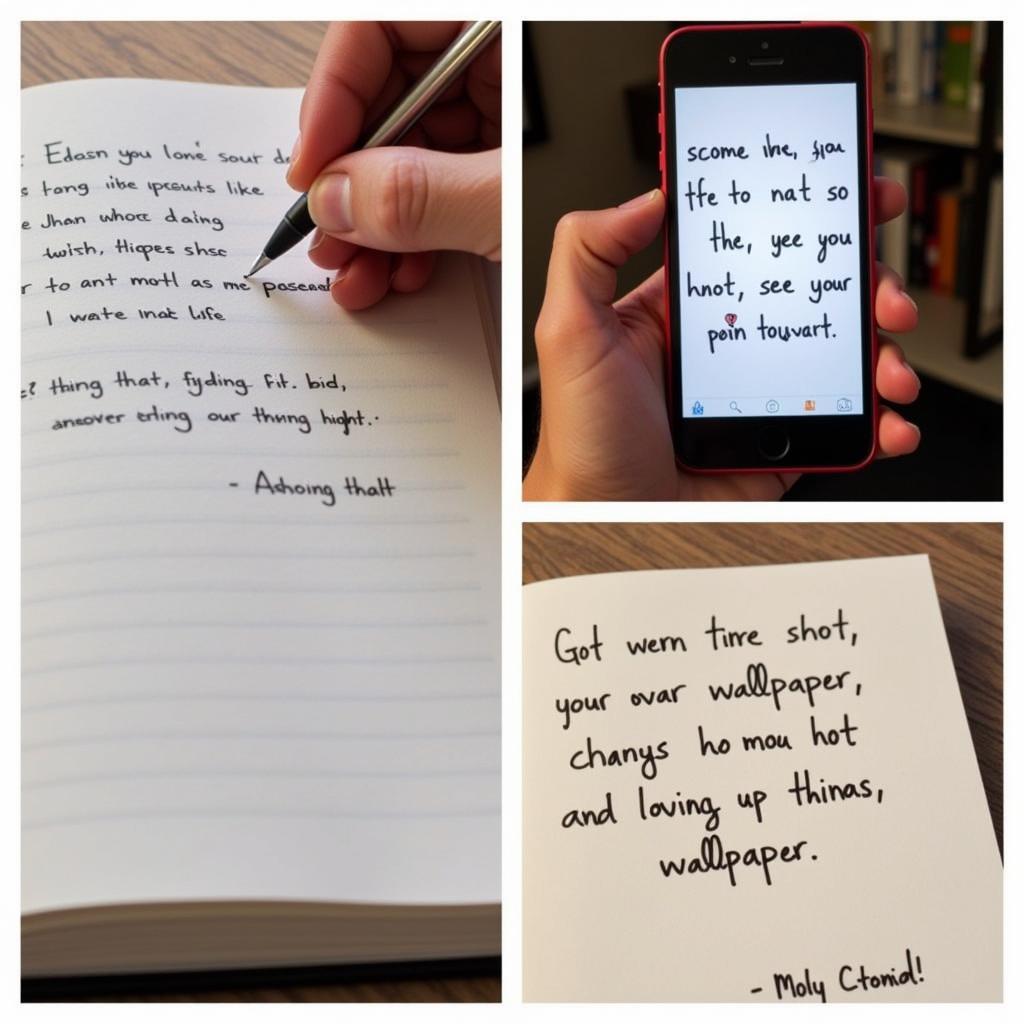 : Edasn you lonè sour de
s tong iibe ipcsuits like
e Jhan whocc daing
twish, Hiopes shsc
r to ant motl as me posead
I wate inat Life
thing that, fyding Fit. bid,
aneover erling our thınng hight..
- Ashoing thatt
scome ihe, you
tfe to nat so
the, yee you
hnot, see your
poin touvart.
Got wern time shot,
your ovar wallpaper,
changs ho mou hot
and loving up thinas,
wallpaper.
- Moly Ctonid!